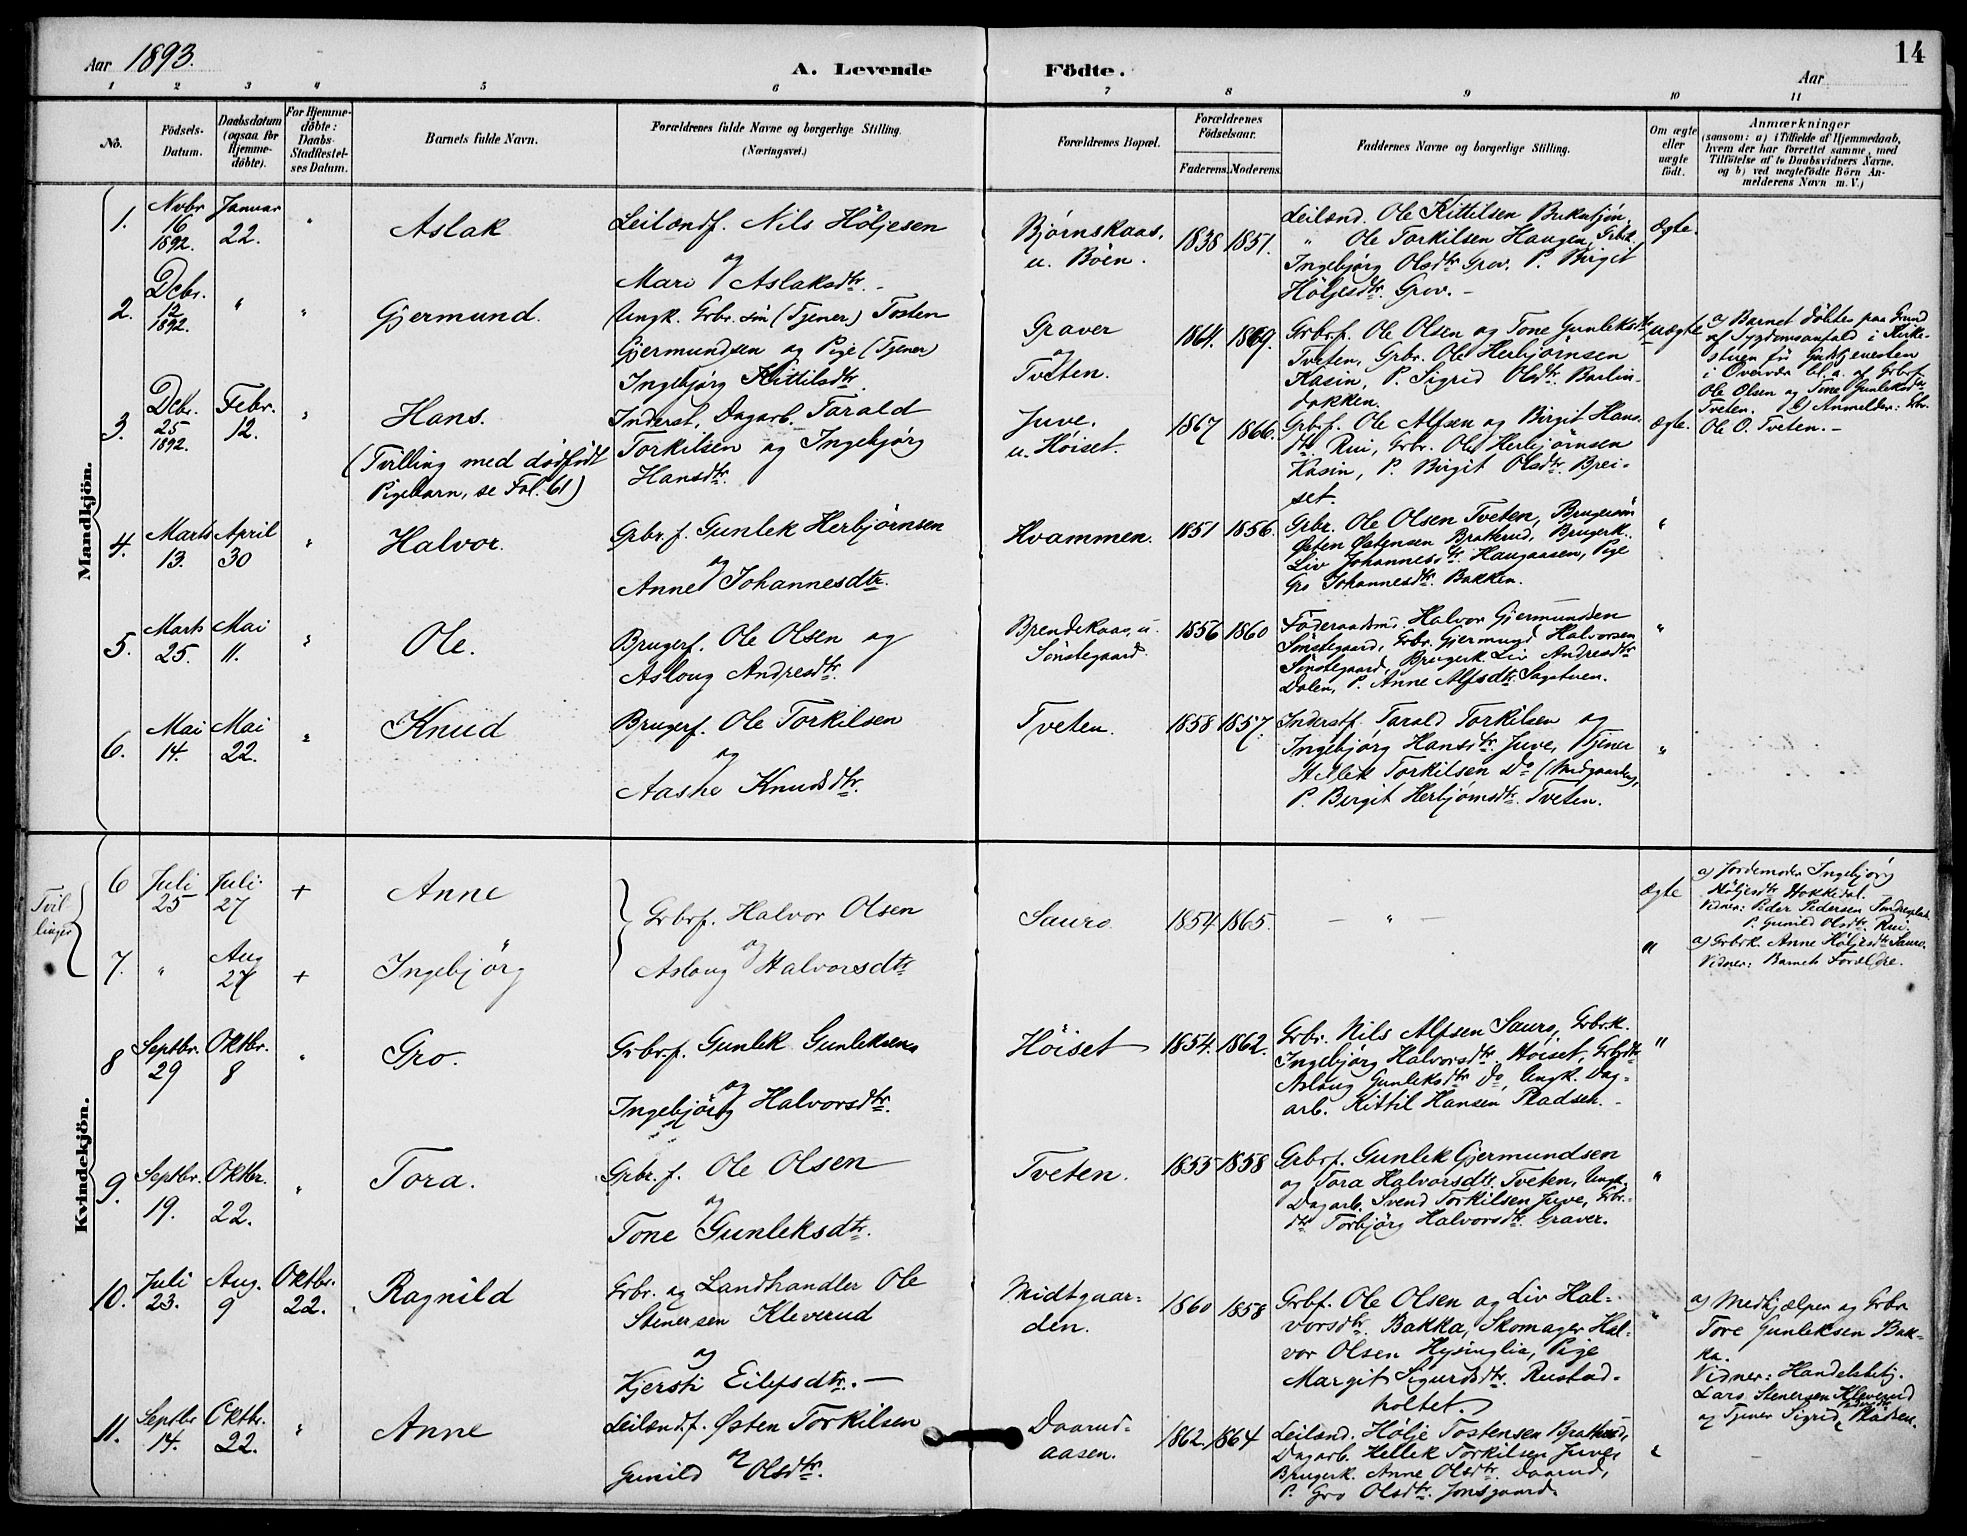 Aar 1893.
A. Levende Födte.
Aar
14
1 2 3 4 5 6 7 8 9 10 11
No.
Födsels-
Datum.
Daabsdatum
(ogsaa for
Hjemme-
döbte).
For Hjemme-
döbte:
Daabs-
Stadfæstel-
ses Datum.
Barnets fulde Navn.
Forældrenes fulde Navne og borgerlige Stilling.
(Næringsvei.)
Forældrenes Bopæl.
Forældrenes
Födselsaar.
Faderens. Moderens.
Faddernes Navne og borgerlige Stilling.
Om ægte
eller
uægte
födt.
Anmærkninger
(saasom: a) i Tilfælde af Hjemmedaab,
hvem der har forrettet samme, med
Tilföielse af to Daabsvidners Navne.
og b) ved uægtefödte Börn An-
melderens Navn m. V.)
Mandkjön.
1.
Novbr
16
1892.
Januar
22.
"
Aslak
Leilændf. Nils Höljesen
og
Mari Aslaksdtr.
Bjørnskaas,
u. Böen.
1838 1851.
Leilænd. Ole Kittilsen
" Ole Torkilsen Haugen, Grbk.
Ingebjørg Olsdtr Grov. P. Birgit
Höljesdtr. Grov. -
Ægte.
2.
Debr.
12
1892.
"
"
Gjermund.
Ungk. Grbr. søn (Tjener) Tosten
Gjermundsen og Pige (Tjener)
Ingebjørg Kittilsdtr.
Graver
og
Tveten.
1864. 1869.
Grbrf. Ole Olsen og Tone Gunleksdtr
Tveten, Grbr. Ole Herbjørnsen
Kasin, P. Sigrid Olsdtr. Barlin-
dokken.
uægte
a) Barnet döbtes paa Grund
af Sygdomsanfald i Kirke-
stuen før Gudstjenesten
i Overvær bl. a. af Grbrf.
Ole Olsen og Tone Gunleksdtr
Tveten. b) Anmelder: Gbr.
Ole O. Tveten. -
3.
Debr.
25
1892.
Febr.
12.
"
Hans.
(Tvilling med dödfödt
Pigebarn, se Fol. 61)
Inderst, Dagarb. Tarald
Torkilsen og Ingebjørg
Hansdtr.
Juve.
u. Höiset.
1867 1866.
Grbrf. Ole Alfsen og Birgit Hans-
dtr. Rui, Grbr. Ole Herbjørnsen
Kasin, P. Birgit Olsdtr. Brei-
set.
Ægte.
4.
Marts
13.
April
30
"
Halvor.
Grbr. f. Gunlek Herbjørnsen
og
Anne Johannesdtr.
Hvammen.
1851 1856.
Grbr. Ole Olsen Tveten, Brugersøn
Østen Østensen Bratterud, Brugerk.
Liv Johannesdtr. Haugaasen, Pige
Gro Johannesdtr. Bakken.
"
5.
Marts
25.
Mai
11.
"
Ole.
Brugerf. Ole Olsen og
Asloug Andresdtr.
Brendekaas, u.
Sønstegaard.
1856 1860
Föderaadsmd. Halvor Gjermundsen
Sønstegaard, Grbr. Gjermund Halvorsen
Sønstegaard, Brugerk. Liv Andresdtr
Dalen, P. Anne Alfsdtr. Sagstuen.
"
6.
Mai
14.
Mai
22.
"
Knud
Brugerf. Ole Torkilsen
og
Aashe Knudsdtr.
Tveten.
1858 1857.
Inderstf. Tarald Torkilsen og
Ingebjørg Hansdtr. Juve, Tjener
Hellek Torkilsen Do (Midgaarden),
P. Birgit Herbjørnsdtr. Tveten.
"
Kvindekjön.
Tvil-
linger
6
Juli
25
Juli
27
+
Anne
Grbrf. Halvor Olsen
og
Asloug Halvorsdtr
Sauro
1854 1865.
- " -
Ægte
a) Jordemoder Ingebjörg
Höljesdtr Hokkedal.
Vidner: Peder Pedersen
P. Gunild Olsdtr. Rui.
7.
"
Aug
27
+
Ingebjörg
"
a) Grbrk. Anne Höljesdtr Sauro.
Vidner: Barnets Forældre.
8
Septbr.
29
Oktbr.
8
"
Gro.
Grbr. f. Gunlek Gunleksen
og
Ingebjörg Halvorsdtr.
Höiset
1854. 1862.
Grbr. Nils Alfsen Sauro, Grbr.k.
Ingebjørg Halvorsdtr. Höiset, Grbdtr
Aslaug Gunleksdtr Do, Ungk. Dag-
arb. Kittil Hansen Pladsen. -
"
9.
Septbr.
19.
Oktbr.
22.
"
Tora.
Grbr. f. Ole Olsen
og
Tone Gunleksdtr.
Tveten.
1855 1858
Grbrf. Gunlek Gjermundsen
og Tora Halvorsdtr. Tveten, Ungk.
Dagarb. Svend Torkilsen Juve, Grbr.-
dtr Torbjörg Halvorsdtr. Graver.
"
10.
Juli
23.
Aug.
9
Oktbr.
22.
Ragnild
Grbr. og Landhandler Ole
Stenersen Kleverud
og
Kjersti Eilefsdtr. -
Midtgaar-
den.
1860 1858
Grbf. Ole Olsen og Liv Hal-
vorsdtr. Bakka, Skomager Hal-
vor Olsen Hysinglia, Pige
Margit Sigurdsdtr. Rustad-
holtet.
"
a) Medhjælper og Grbr
Tore Gunleksen Bak-
ka.
Vidner: Handelsbtj.
Lars Stenersen Kleverud
og Tjener Sigrid Pladsen.
11.
Septbr
14.
Oktbr.
22.
"
Anne
Leilænd.f. Østen Torkilsen
og
Gunild Olsdtr.
Daarud-
aasen.
1862. 1864
Leilænd. Hølje Tostensen Bratterud,
Dagarb. Hellek Torkilsen Juve,
Brugerk. Anne Olsdtr. Daarud,
P. Gro Olsdtr. Jonsgaard.
"